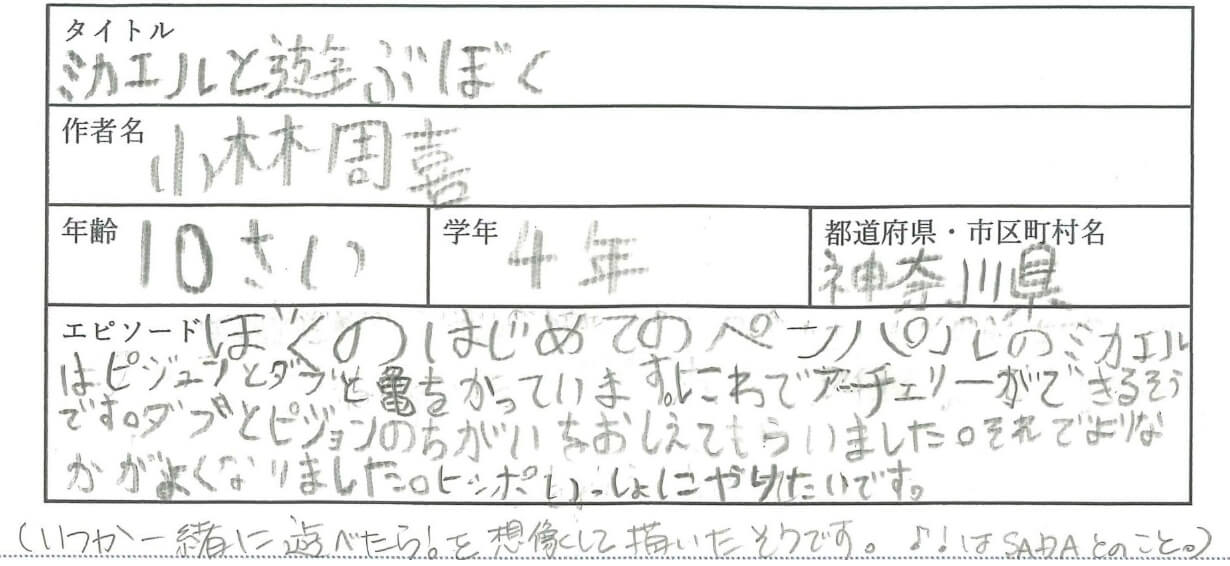 タイトル
ミカエルと遊ぶぼく
作者名
小林周喜
年齢 10さい 学年 4年 都道府県・市区町村名
神奈川県
エピソード ぼくのはじめてのペンパルのミカエル
はピジョンとダブと亀をかっています。にわでアーチェリーができるそう
です。ダブとピジョンのちがいをおしえてもらいました。それでよりな
かがよくなりました。ヒッポいっしょにやりたいです。
(いつか一緒に遊べたら!と想像して描いたそうです。♪!はSADAとのこと。)